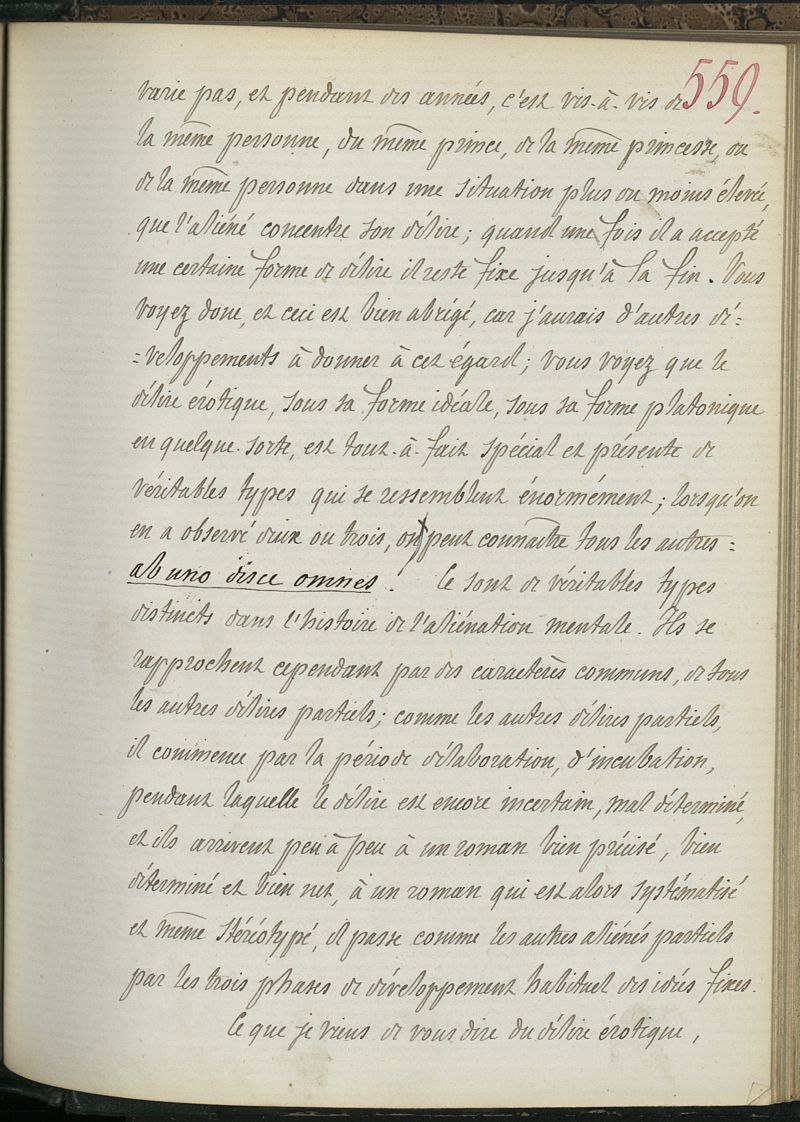 559.
varie pas, et pendant des années, c'est vis-à-vis de
la même personne, du même prince, de la même princesse, ou
de la même personne dans une situation plus ou moins élevée,
que l'aliéné concentre son délire ; quand une fois il a accepté
une certaine forme de délire il reste fixe jusqu'à la fin. Vous
voyez donc, et ceci est bien abrégé, car j'aurais d'autres dé=
=veloppements à donner à cet égard ; vous voyez que le
délire érotique, sous sa forme idéale, sous sa forme platonique
en quelque sorte, est tout-à-fait spécial et présente de
véritables types qui se ressemblent énormément ; lorsqu'on
en a observé deux ou trois, on peut connaître tous les autres =
ab uno disce omnes. Ce sont de véritables types
distincts dans l'histoire de l'aliénation mentale. Ils se
rapprochent cependant par des caractères communs, de tous
les autres délires partiels ; comme les autres délires partiels,
il commence par la période d'élaboration, d'incubation,
pendant laquelle le délire est encore incertain, mal déterminé,
et ils arrivent peu à peu à un roman bien précisé, bien
déterminé et bien net, à un roman qui est alors systématisé
et même stéréotypé, il passe comme les autres aliénés partiels
par les trois phases de développement habituel des idées fixes.
Ce que je viens de vous dire du délire érotique,